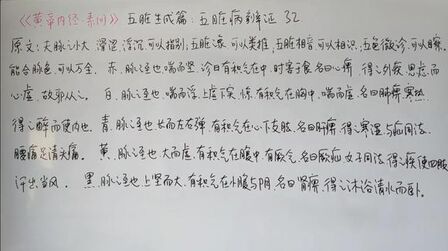 《黄帝内经·素问》 五脏生成篇：五脏病辨证 32
原文：夫脉之小大 滑涩 浮沉 可以指别；五脏之象，可以类推，五脏相音，可以相识；五色微诊，可以目察，
能合脉色，可以万全。赤，脉之至也，喘而坚，诊曰有积气在中，时害于食，名曰心痹，得之外疾，思虑而
心虚，故邪从之。白，脉之至也，喘而浮，上虚下实，惊，有积气在胸中，喘而虚，名曰肺痹，寒热，
得之醉而使内也。青，脉之至也，长而左右弹，有积气在心下支胠，名曰肝痹，得之寒湿，与疝同法，
腰痛足清头痛。黄，脉之至也，大而虚，有积气在腹中，有厥气，名曰厥疝，女子同法，得之疾使四肢
汗出当风。黑，脉之至也，上坚而大，有积气在小腹与阴，名曰肾痹，得之沐浴清水而卧。